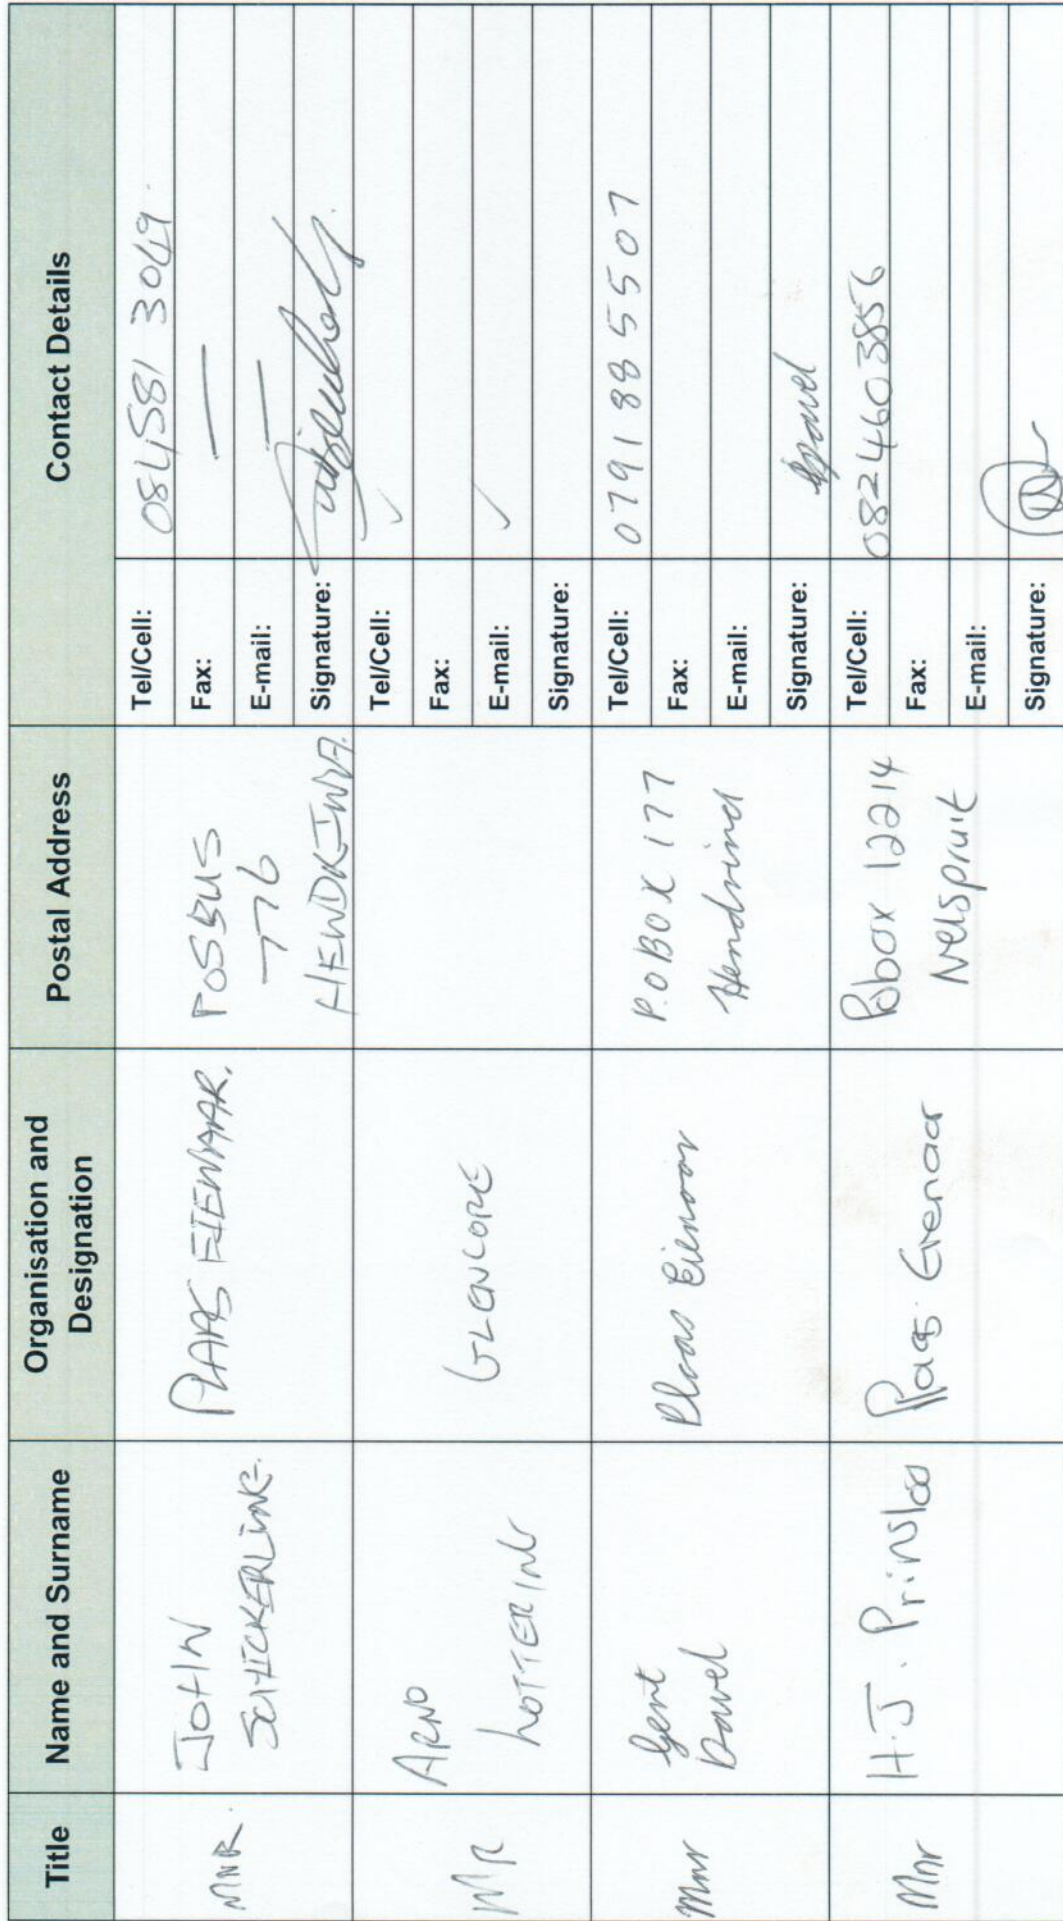 Title
Name and Surname
Organisation and
Designation
Postal Address
Contact Details
MNR.
JOHN
SCHICKERLING.
PLAAS EIENAAR.
POSBUS
776
HENDRINA.
Tel/Cell: 084581 3049.
Fax: —
E-mail: —
Signature:
MR
ARNO
LOTTERING
GLENCORE
Tel/Cell: ✓
Fax:
E-mail: ✓
Signature:
Mnr
Gert
Davel
Plaas Eienaar
P.O BOX 177
Hendrina
Tel/Cell: 0791885507
Fax:
E-mail:
Signature: GDavel
Mnr
H.J. Prinsloo
Plaas Eienaar
Pobox 12214
Nelspruit
Tel/Cell: 0824603856
Fax:
E-mail:
Signature: